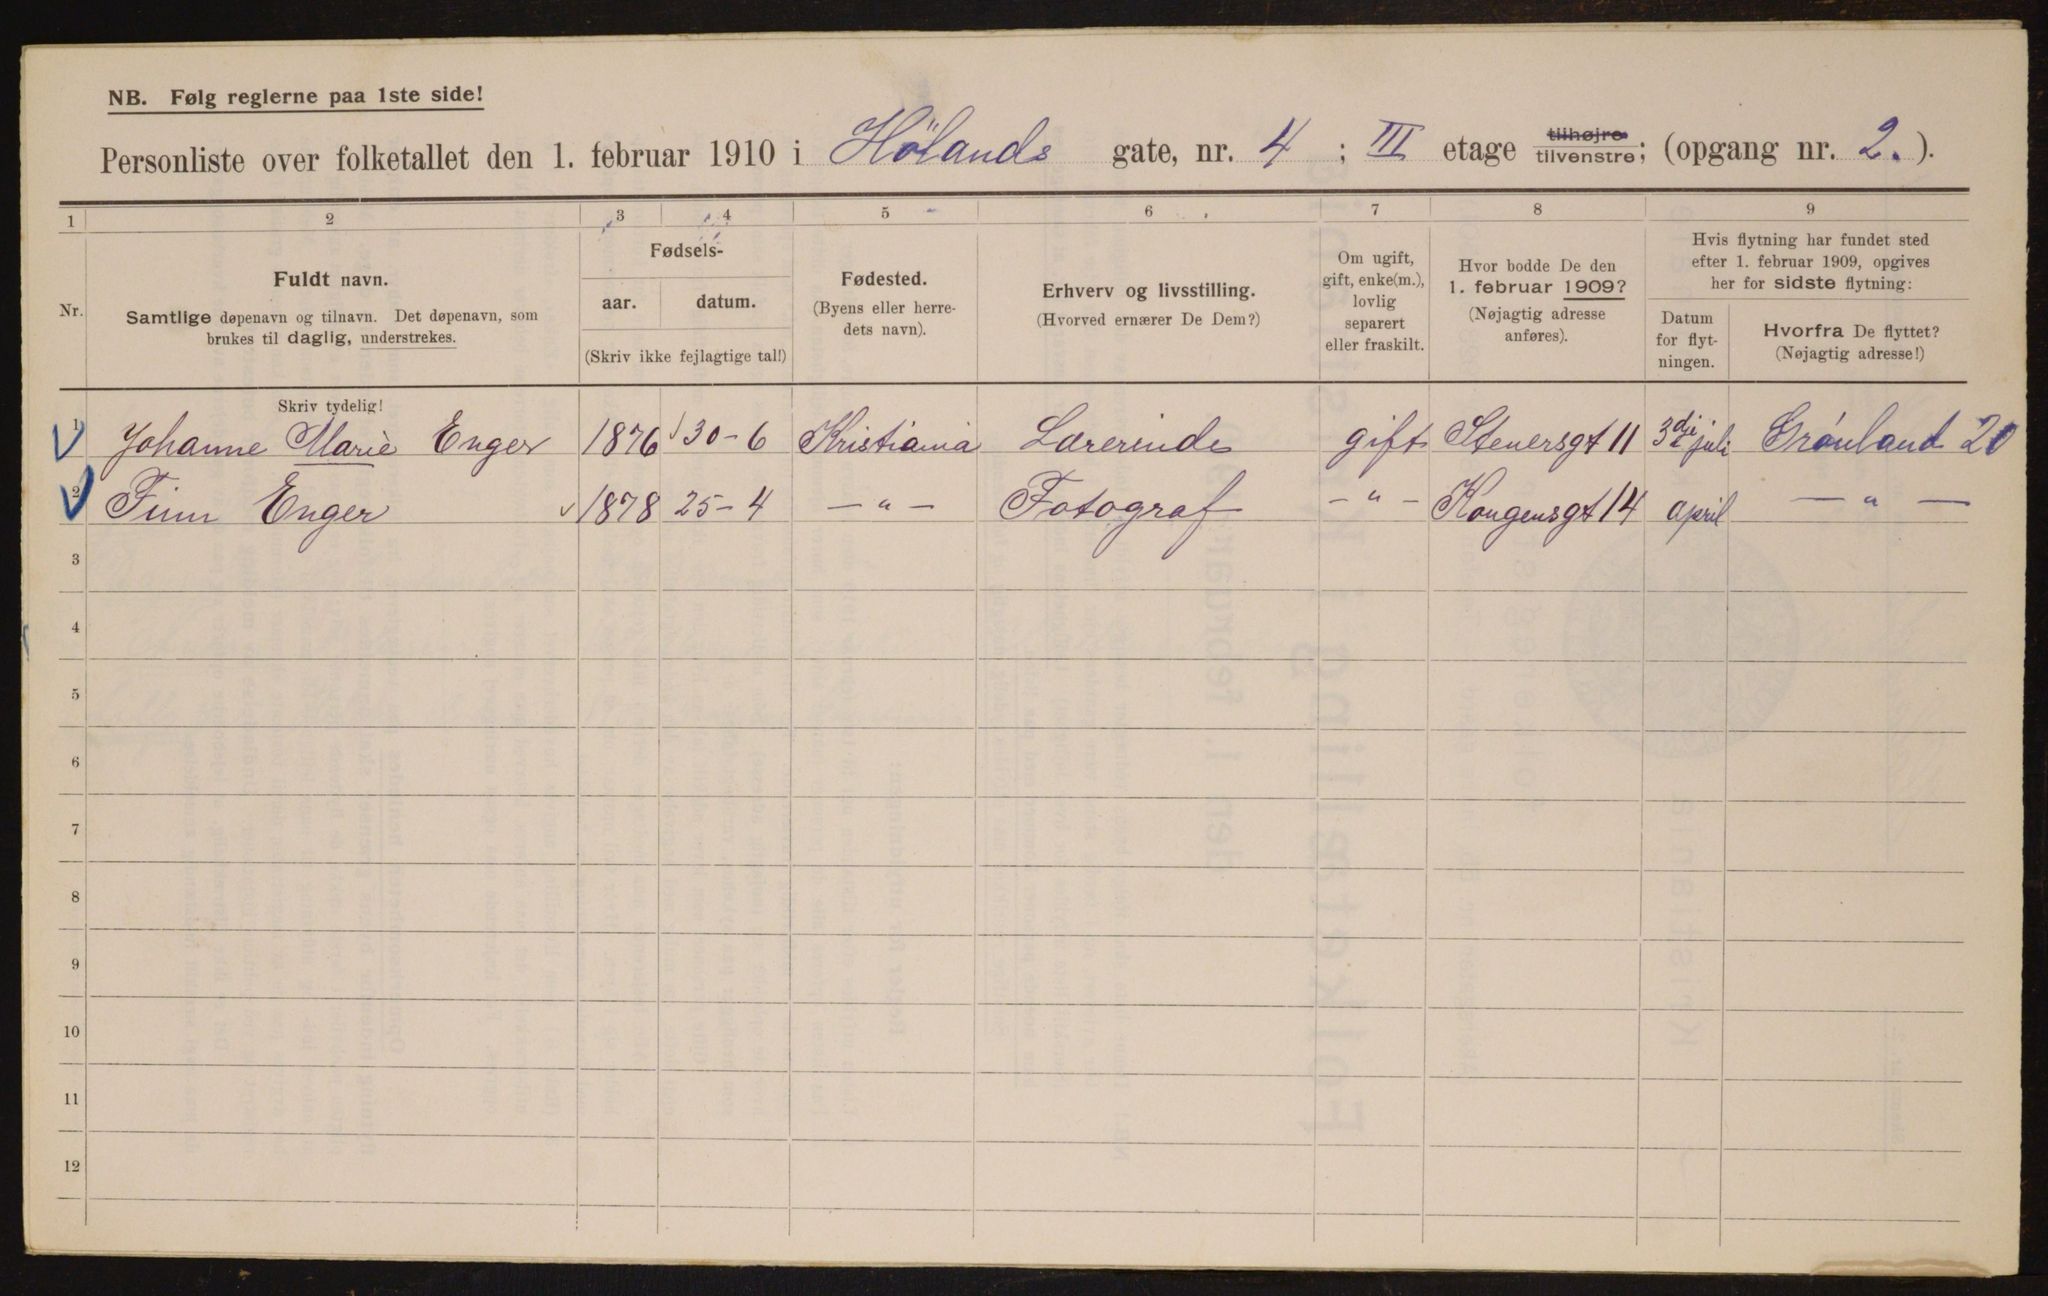 NB. Følg reglerne paa 1ste side!
Personliste over folketallet den 1. februar 1910 i Hölands gate, nr. 4 ; III etage tilhøjre tilvenstre; (opgang nr. 2. ).
1 2 3 4 5 6 7 8 9
Nr.
Fuldt navn.
Samtlige døpenavn og tilnavn. Det døpenavn, som
brukes til daglig, understrekes.
Skriv tydelig!
Fødsels-
aar. datum.
(Skriv ikke fejlagtige tal!)
Fødested.
(Byens eller herre-
dets navn).
Erhverv og livsstilling.
(Hvorved ernærer De Dem?)
Om ugift,
gift, enke(m.),
lovlig
separert
eller fraskilt.
Hvor bodde De den
1. februar 1909?
(Nøjagtig adresse
anføres).
Hvis flytning har fundet sted
efter 1. februar 1909, opgives
her for sidste flytning:
Datum
for flyt-
ningen.
Hvorfra De flyttet?
(Nøjagtig adresse!)
1 Johanne Marie Enger 1876 30-6 Kristiania Lærerinde gift Stenersgt 11 3dje juli Grønland 20
2 Finn Enger 1878 25-4 — " — Fotograf — " — Kongensgt 14 april — " —
3
4
5
6
7
8
9
10
11
12